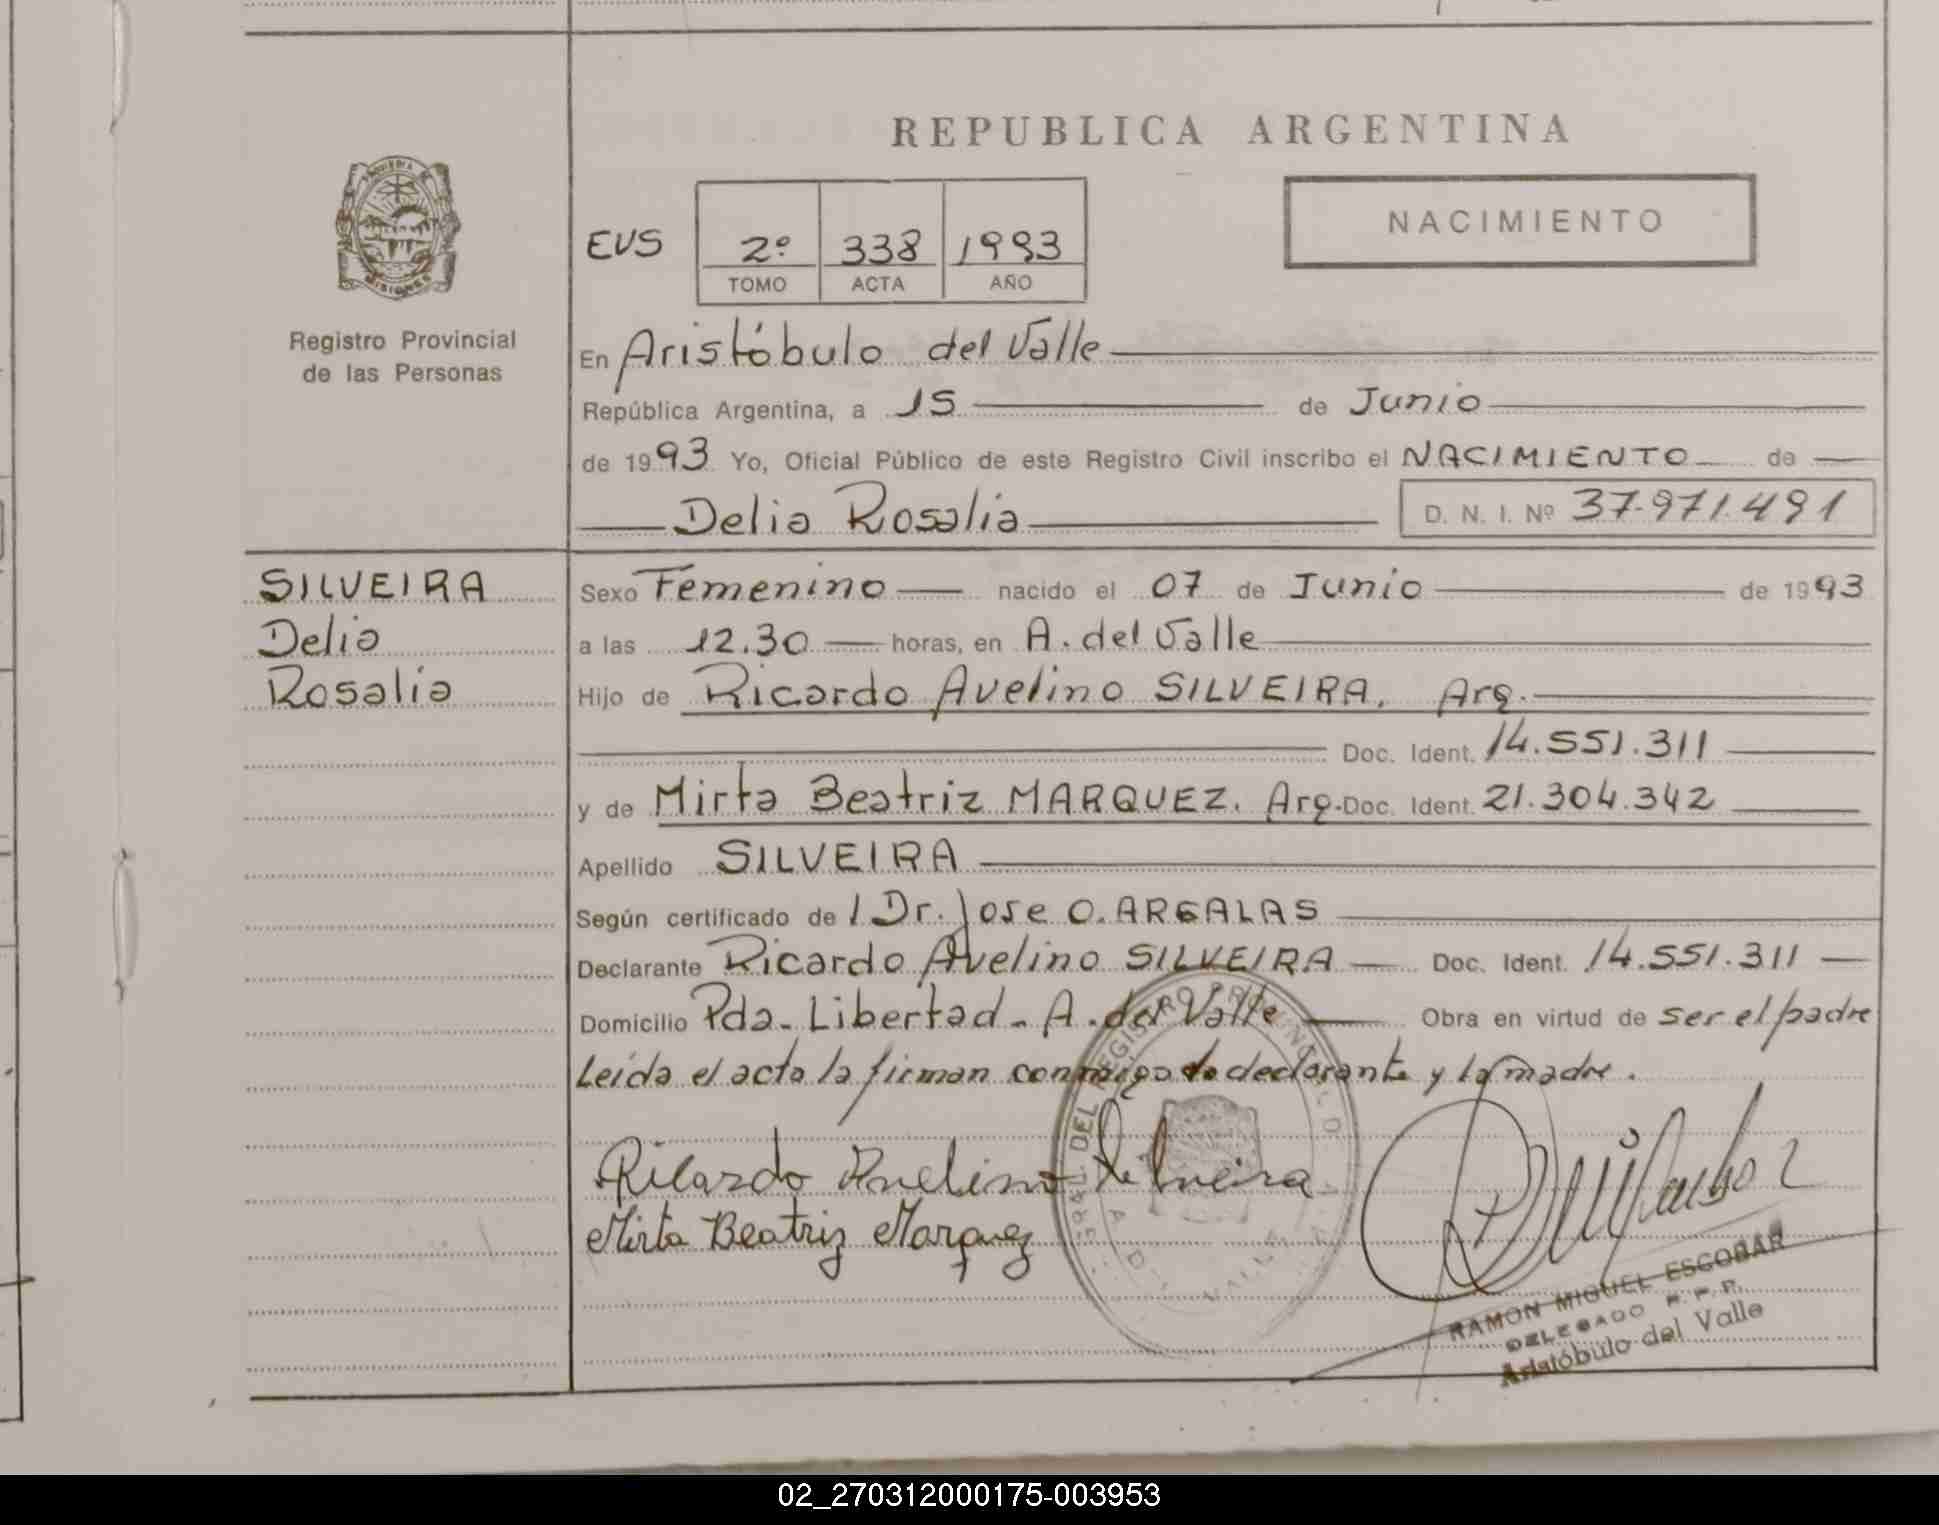 REPUBLICA ARGENTINA
NACIMIENTO
EVS
2º 338 1993
TOMO ACTA AÑO
Registro Provincial
de las Personas
En Aristóbulo del Valle
República Argentina, a 15 de Junio
de 1993 Yo, Oficial Público de este Registro Civil inscribo el NACIMIENTO de
Delia Rosalia D. N. I. Nº 37.971.491
SILVEIRA
Delia
Rosalia
Sexo Femenino nacido el 07 de Junio de 1993
a las 12.30 horas, en A. del Valle
Hijo de Ricardo Avelino SILVEIRA. Arg.
Doc. Ident. 14.551.311
y de Mirta Beatriz MARQUEZ. Arg. Doc. Ident. 21.304.342
Apellido SILVEIRA
Según certificado de l Dr. Jose O. ARGALAS
Declarante Ricardo Avelino SILVEIRA Doc. Ident. 14.551.311
Domicilio Pda. Libertad - A. del Valle Obra en virtud de ser el padre
Leída el acta la firman conmigo declarante y la madre.
Ricardo Avelino Silveira
Mirta Beatriz Marquez
RAMON MIGUEL ESCOBAR
DELEGADO
Aristóbulo del Valle
02_270312000175-003953